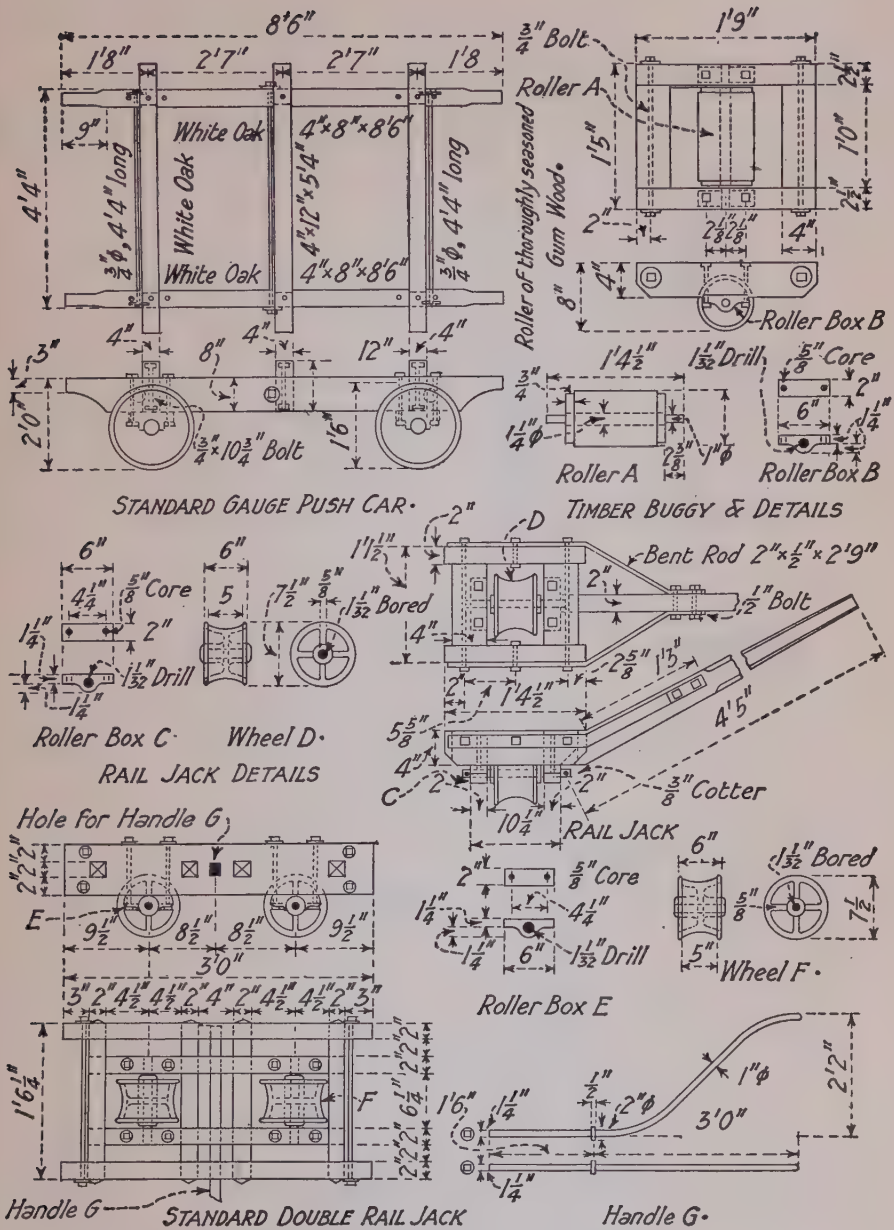 8'6"
1'8" 2'7" 2'7" 1'8
9"
4'4"
3/4"ϕ, 4'4" long
White Oak 4"×8"×8'6"
White Oak
4"×12"×5'4"
White Oak 4"×8"×8'6"
3/4"ϕ, 4'4" long
4" 4" 4"
3" 8" 12"
2'0" 1'6"
3/4"×10 3/4" Bolt
STANDARD GAUGE PUSH CAR.
1'9"
3/4" Bolt
Roller A
Roller of thoroughly seasoned
Gum Wood.
1'5"
2 1/2"
1'0"
2 1/2"
2" 2 1/8" 2 1/8" 4"
8" 4"
Roller Box B
1'4 1/2"
3/4"
1 1/4"ϕ
2 3/8" 1"ϕ
Roller A
1 1/32" Drill
5/8" Core
2"
6"
1 1/4"
Roller Box B
TIMBER BUGGY & DETAILS
6"
4 1/4"
5/8" Core
2"
1 1/4"
1 1/32" Drill
1 1/4"
Roller Box C.
6"
5
7 1/2"
5/8"
1 1/32" Bored
Wheel D.
RAIL JACK DETAILS
2" D
1'1 1/2"
Bent Rod 2"×1/2"×2'9"
2"
1/2" Bolt
4"
2 5/8"
1'3"
2" 1'4 1/2"
5 5/8"
4'5"
4"
C 2" 2"
3/8" Cotter
10 1/4"
RAIL JACK
Hole for Handle G
2" 2" 2"
E
9 1/2" 8 1/2" 8 1/2" 9 1/2"
3'0"
3" 2" 4 1/2" 4 1/2" 2" 4" 2" 4 1/2" 4 1/2" 2" 3"
1'6 1/4"
2" 2" 2"
6 1/4"
2" 2" 2"
F
Handle G
STANDARD DOUBLE RAIL JACK
2"
5/8" Core
1 1/4"
4 1/4"
1 1/4"
6"
1 1/32" Drill
Roller Box E
6"
1 1/32" Bored
5/8"
7 1/2
5"
Wheel F.
1'6"
1 1/4"
1/2"
2"ϕ
1"ϕ
2'2"
3'0"
1 1/4"
Handle G.